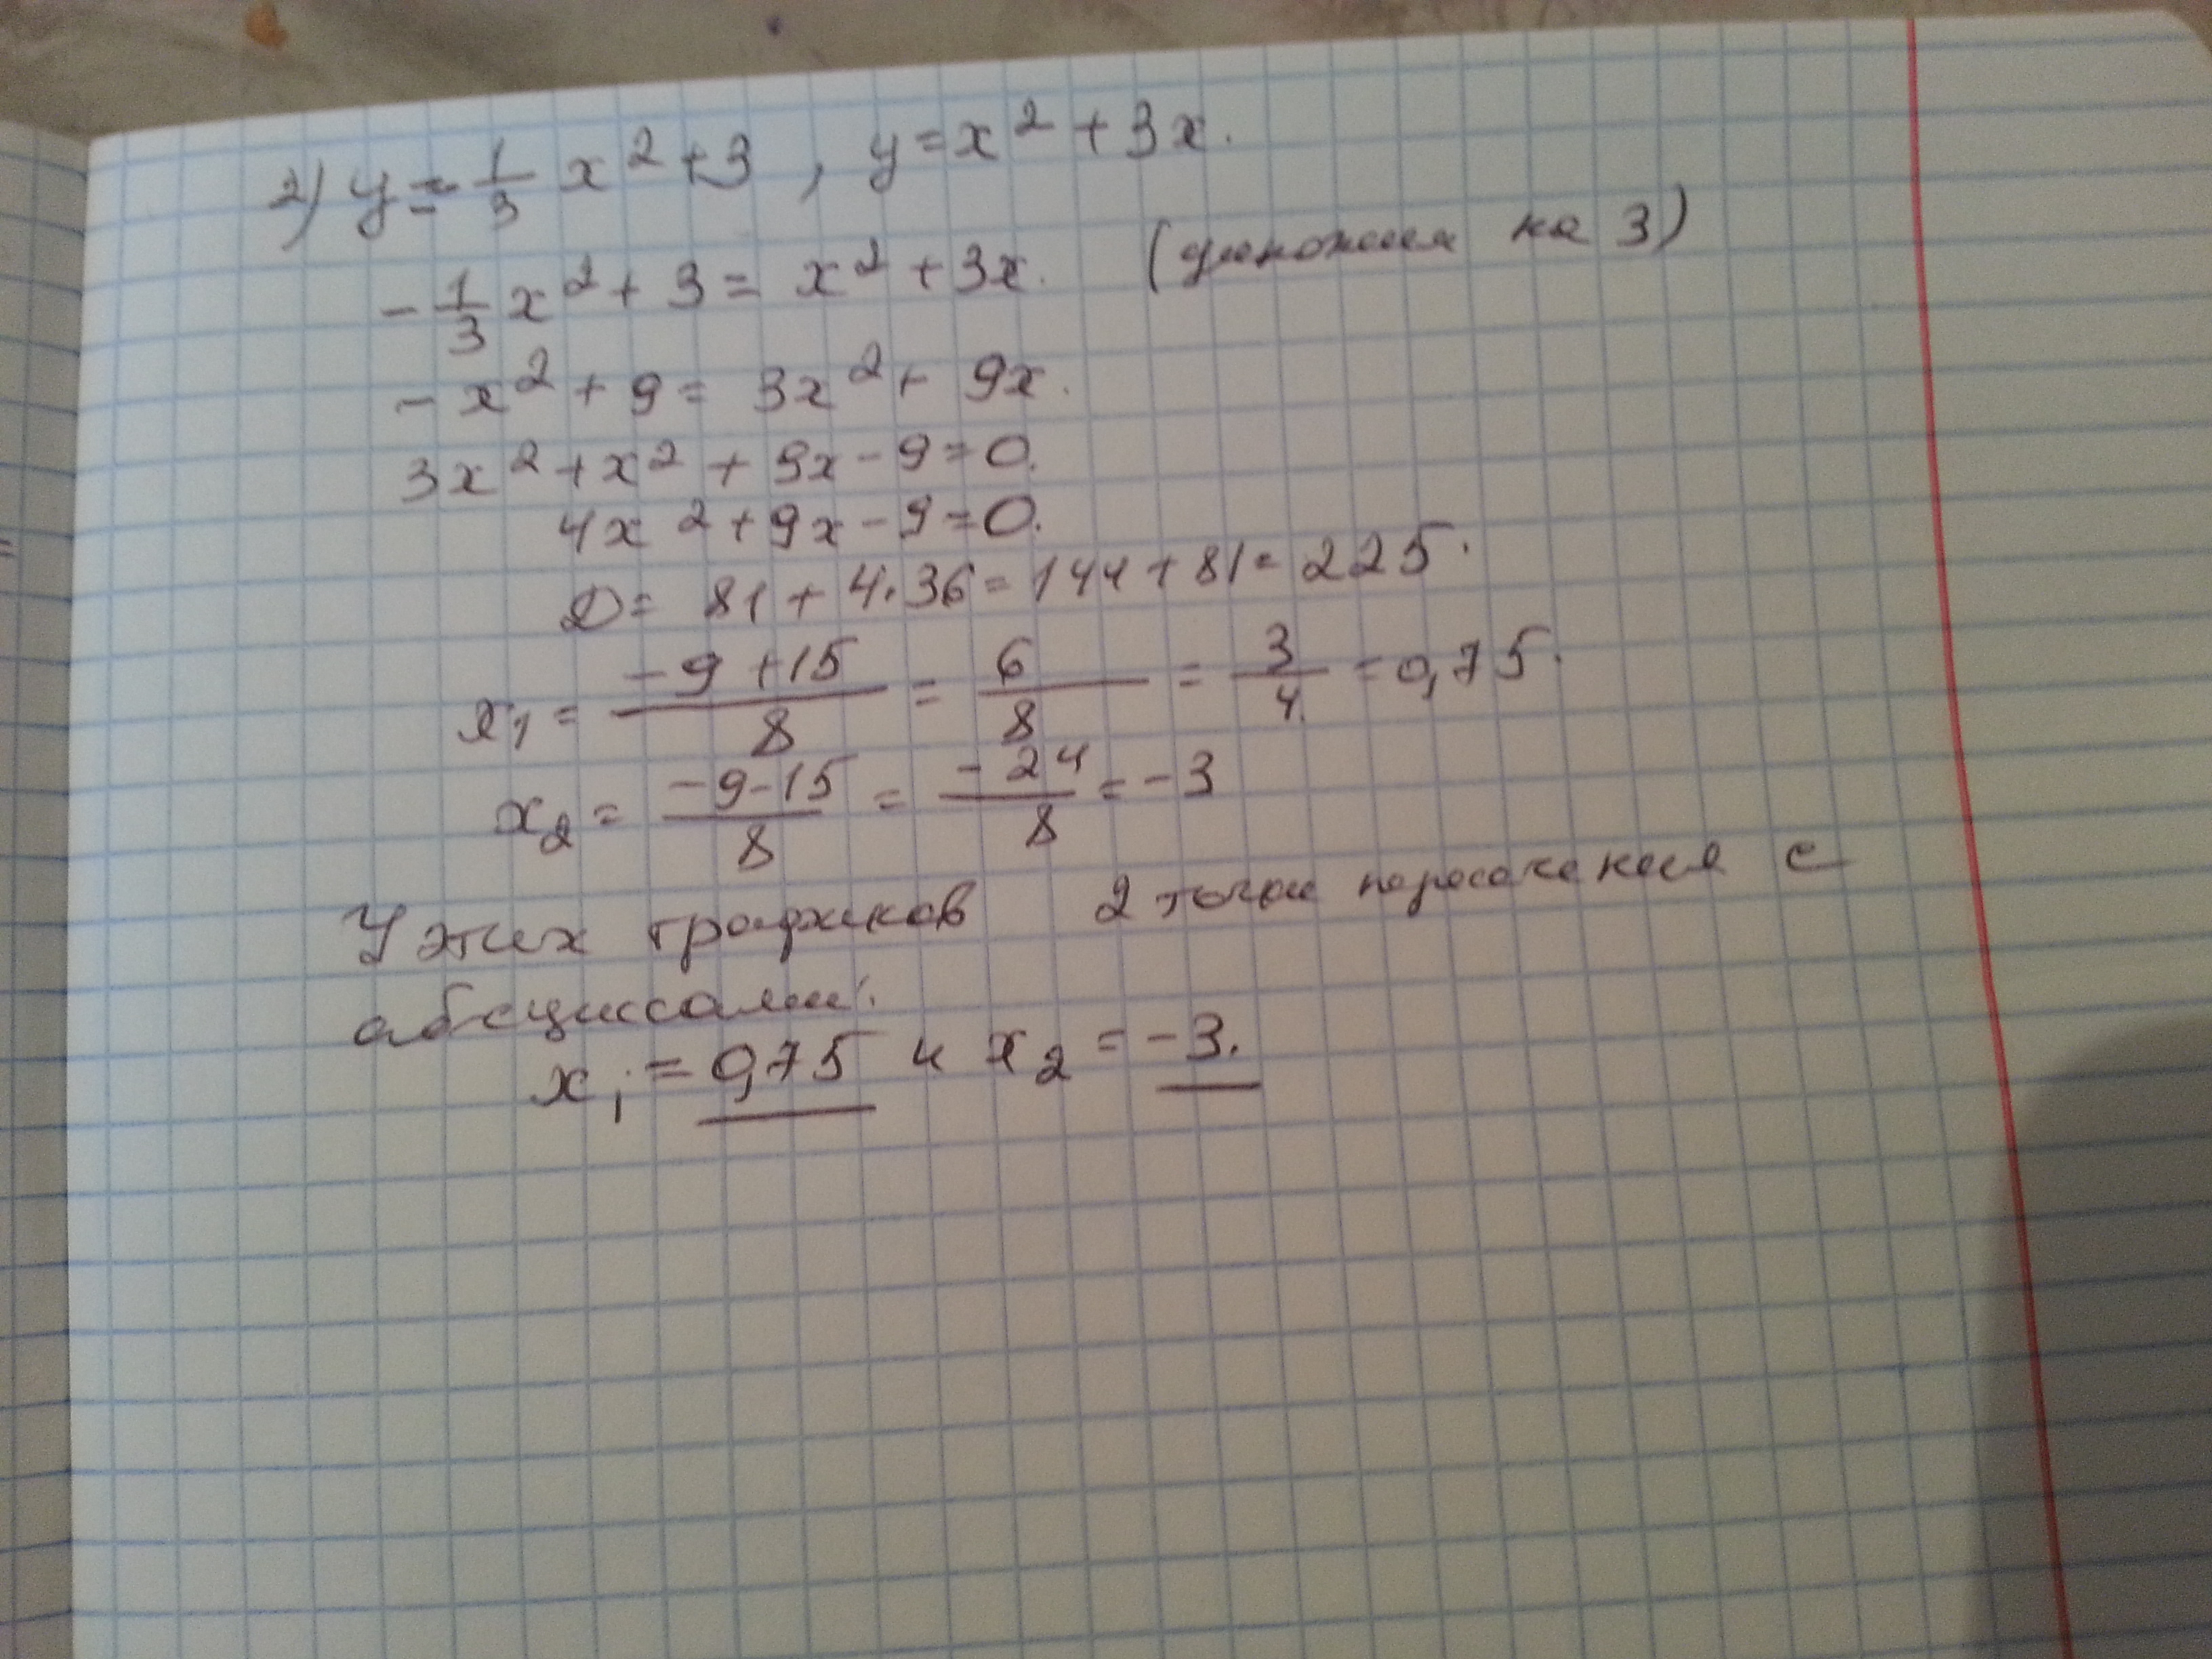 2) y = -1/3 x² + 3 , y = x² + 3x.
-1/3 x² + 3 = x² + 3x. (умножим на 3)
-x² + 9 = 3x² + 9x.
3x² + x² + 9x - 9 = 0.
4x² + 9x - 9 = 0.
D = 81 + 4·36 = 144 + 81 = 225.
x₁ = (-9 + 15)/8 = 6/8 = 3/4 = 0,75.
x₂ = (-9 - 15)/8 = -24/8 = -3
У этих графиков 2 точки пересечения с
абсциссами:
x₁ = 0,75 и x₂ = -3.
=